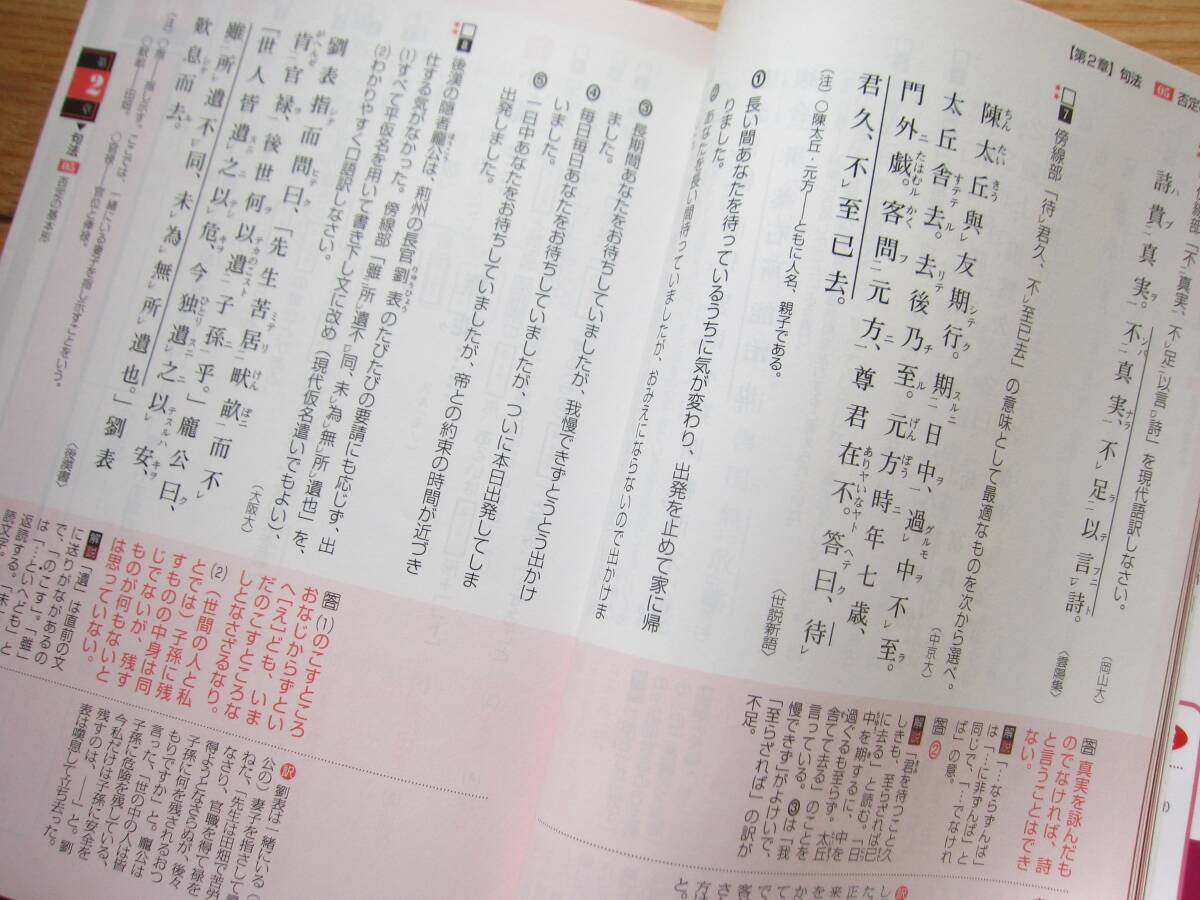 【第2章】句法 05 否定
詩貴真実。不真実、不レ足三以言レ詩。
〈雲陽集〉
(岡山大)
答 真実を詠んだも
のでなければ、詩
と言うことはでき
ない。
解説 「…ならずんば」
は「…に非ずんば」と
同じで、「…でなけれ
ば」の意。
7 傍線部「待レ君久、不レ至已去」の意味として最適なものを次から選べ。
(中京大)
陳太丘與レ友期行。期二日中一、過レ中不レ至。
太丘舎去。去後乃至。元方時年七歳、
門外戯。客問二元方一、尊君在不。答曰、待レ
君久、不レ至已去。
〈世説新語〉
(注) ○陳太丘・元方――ともに人名、親子である。
① 長い間あなたを待っているうちに気が変わり、出発を止めて家に帰
りました。
② あなたを長い間待っていましたが、おみえにならないので出かけま
③ 長期間あなたをお待ちしていましたが、我慢できずとうとう出かけ
ました。
④ 毎日毎日あなたをお待ちしていましたが、ついに本日出発してしま
いました。
⑤ 一日中あなたをお待ちしていましたが、帝との約束の時間が近づき
出発しました。
答 ②
解説 「君を待つこと久
しきも、至らざれば已
に去る」と読む。「日
中を期するに、中を
過ぐるも至らず。太丘
舎てて去る」のことを
言っている。③は「我
慢できず」がよけいで、
「至らざれば」の訳が
不足。
8 後漢の隠者龐公は、荊州の長官劉表のたびたびの要請にも応じず、出
仕する気がなかった。傍線部「雖二所レ遺不一レ同、未レ為レ無レ所レ遺也」を、
(1)すべて平仮名を用いて書き下し文に改め(現代仮名遣いでもよい)、
(2)わかりやすく口語訳しなさい。
(大阪大)
劉表指而問曰、「先生苦居二畎畝一而不レ
肯二官禄一、後世何以遺二子孫一乎。」龐公曰、
「世人皆遺レ之以レ危、今独遺レ之以レ安、
雖二所レ遺不一レ同、未レ為レ無レ所レ遺也。」劉表
歎息而去。
〈後漢書〉
答 (1)のこすところ
おなじからずとい
へ〔え〕ども、いま
だのこすところな
しとなさざるなり。
(2)(世間の人と私
とでは)子孫に残
すものの中身は同
じでないが、残す
ものが何もないと
は思っていない。
解説 「遺」は直前の文
に送りがながあるの
で、「のこす」。「雖」
は「…といへども」と
返読する。「未」と
訳 劉表は一緒にいる
公の)妻子を指さして
ねた、「先生は田畑で苦労
なさり、官職を得て禄を
得ようとなさらぬが、後々
子孫に何を残されるおつ
もりですか」と。龐公は
言った、「世の中の人は皆
子孫に危険を残している、
今私だけは子孫に安全を
残すのは、――」と。劉
表は嘆息して立ち去った。
第2章 ▼句法 05 否定の基本形